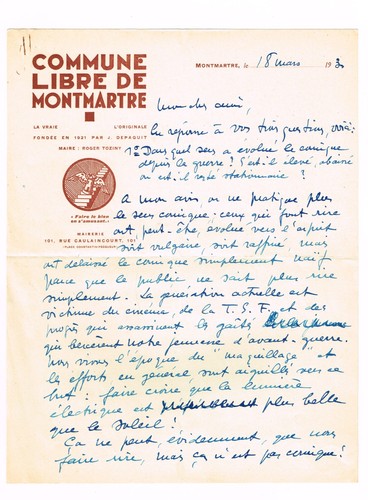 COMMUNE
LIBRE DE
MONTMARTRE
LA VRAIE L'ORIGINALE
FONDÉE EN 1921 PAR J. DEPAQUIT
MAIRE : ROGER TOZINY
« Faire le bien
en s'amusant. »
MAIRIE
101, RUE CAULAINCOURT, 101
MONTMARTRE, LE 18 mars 193
Mon cher ami,
En réponse à vos trois questions voilà :
1° Dans quel sens a évolué le comique
depuis la guerre ? S'est-il élevé, abaissé
ou est-il resté stationnaire ?
A mon avis, on ne pratique plus
le sens comique : ceux qui font rire
ont peut-être, évolué vers l'esprit
soit vulgaire, soit raffiné, mais
ont délaissé le comique simplement naïf
parce que le public ne sait plus rire
simplement. La génération actuelle est
victime du cinéma, de la T.S.F. et des
progrès qui assomment les gaîtés
qui bercèrent notre jeunesse d'avant-guerre.
Nous vivons l'époque du "maquillage" et
les efforts en général sont aiguillés vers ce
but : faire croire que la lumière
électrique est plus belle
que le soleil !
Ça ne peut, évidemment, que nous
faire rire, mais ça n'est pas comique !